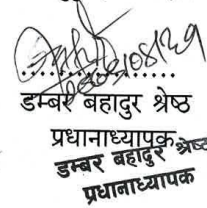 डम्बर बहादुर श्रेष्ठ
प्रधानाध्यापक
डम्बर बहादुर श्रेष्ठ
प्रधानाध्यापक